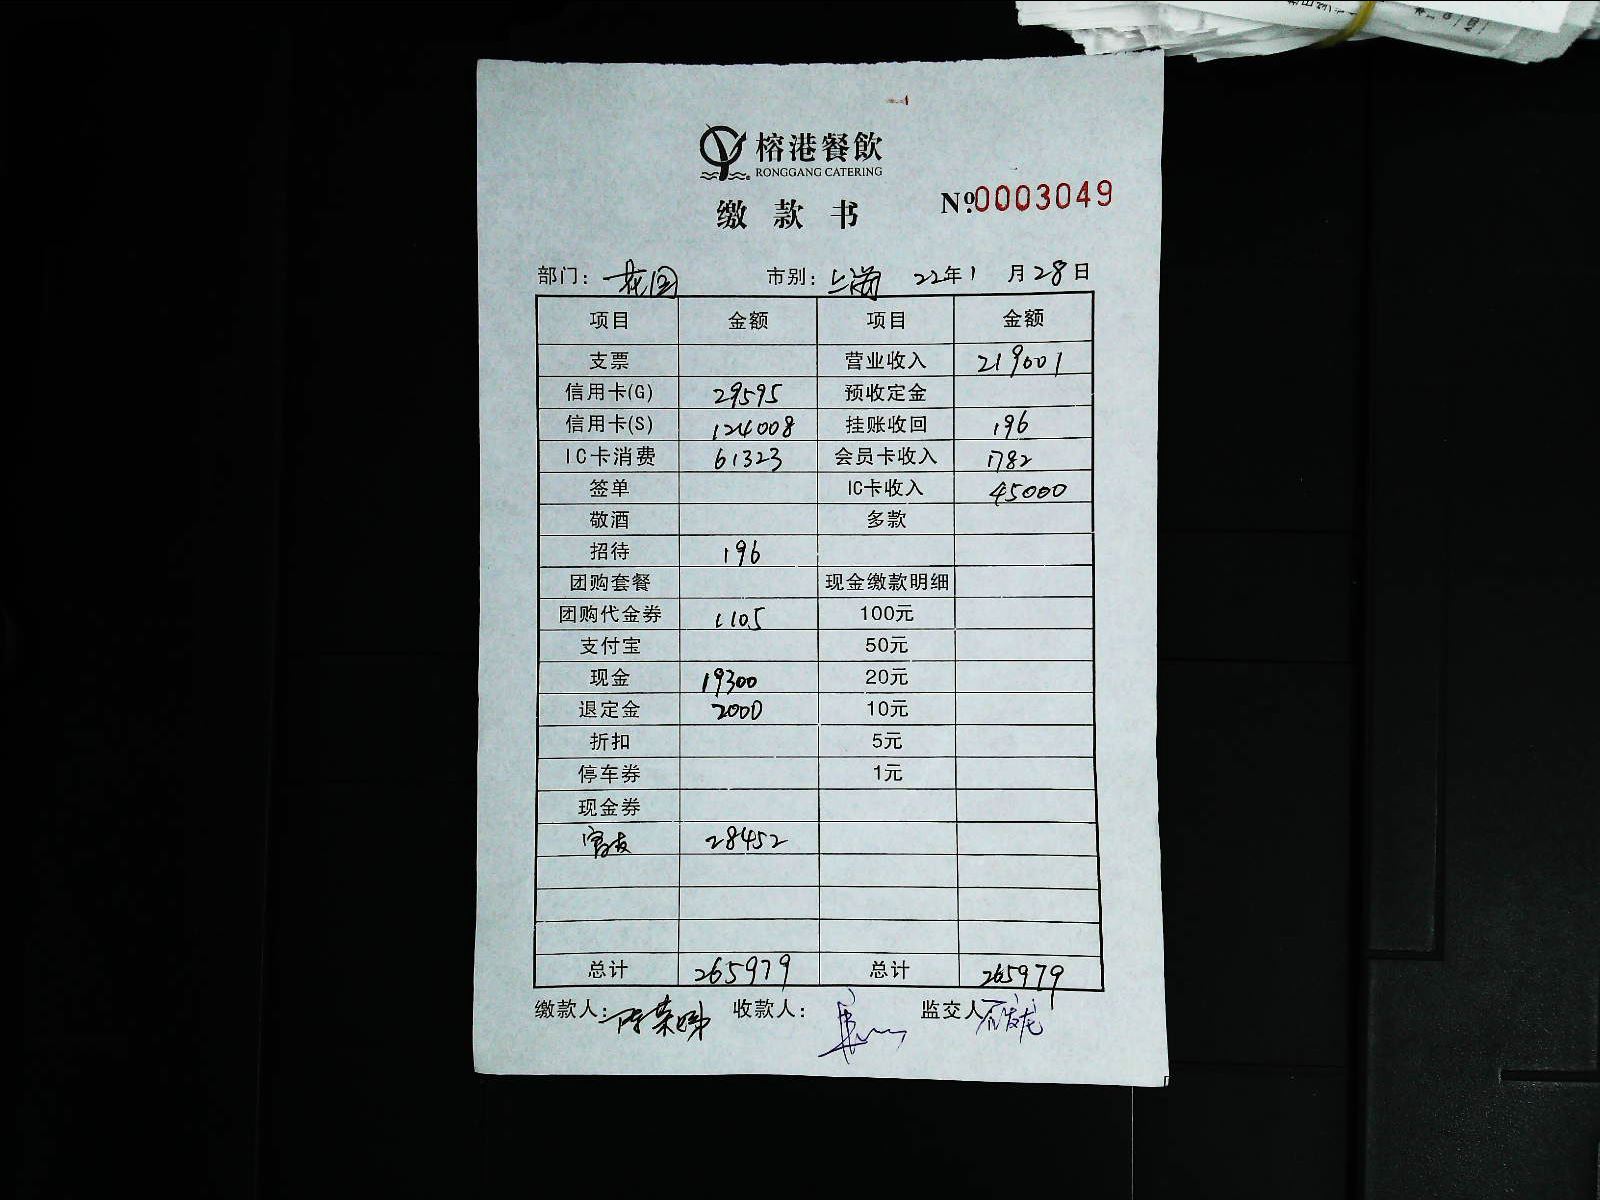 榕港餐飲
RONGGANG CATERING
缴款书 №0003049
部门: 花园 市别: 上海 22年1月28日
项目 金额 项目 金额
支票 营业收入 219001
信用卡(G) 29595 预收定金
信用卡(S) 124008 挂账收回 196
IC卡消费 61323 会员卡收入 1782
签单 IC卡收入 45000
敬酒 多款
招待 196
团购套餐 现金缴款明细
团购代金券 1105 100元
支付宝 50元
现金 19300 20元
退定金 2000 10元
折扣 5元
停车券 1元
现金券
28452
总计 265979 总计 265979
缴款人: 收款人: 监交人